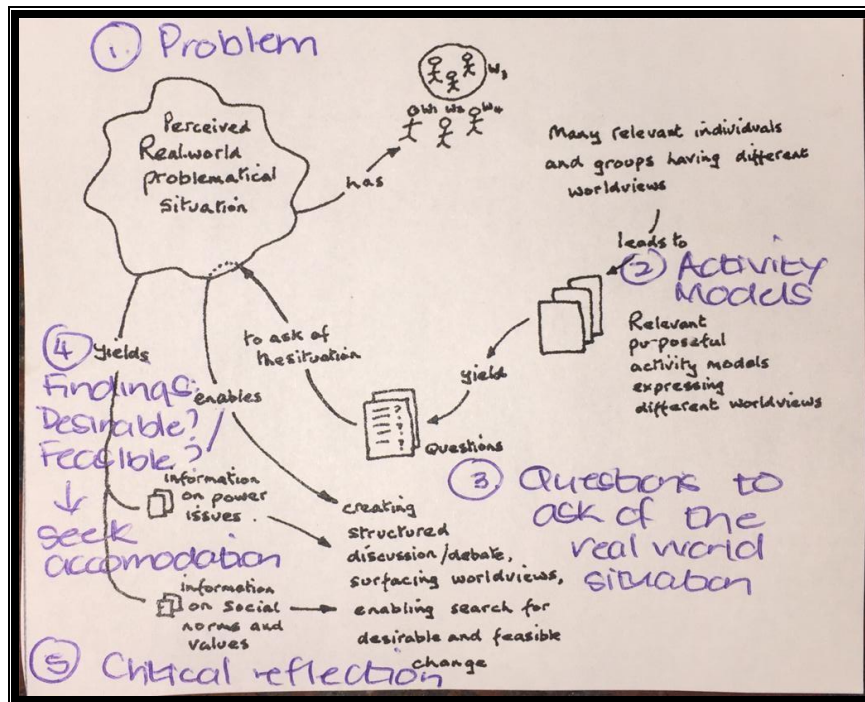 1. Problem
Perceived
Real-world
problematical
situation
has
W3
W1 W2 W4
Many relevant individuals
and groups having different
worldviews
leads to
2 Activity
Models
Relevant
purposeful
activity models
expressing
different worldviews
yield
Questions
to ask of
the situation
3 Questions to
ask of the
real world
situation
4 yields
Findings:
Desirable?/
Feasible?
↓
seek
accomodation
enables
information
on power
issues.
information
on social
norms and
values
creating
structured
discussion/debate,
surfacing worldviews,
enabling search for
desirable and feasible
change
5 Critical reflection